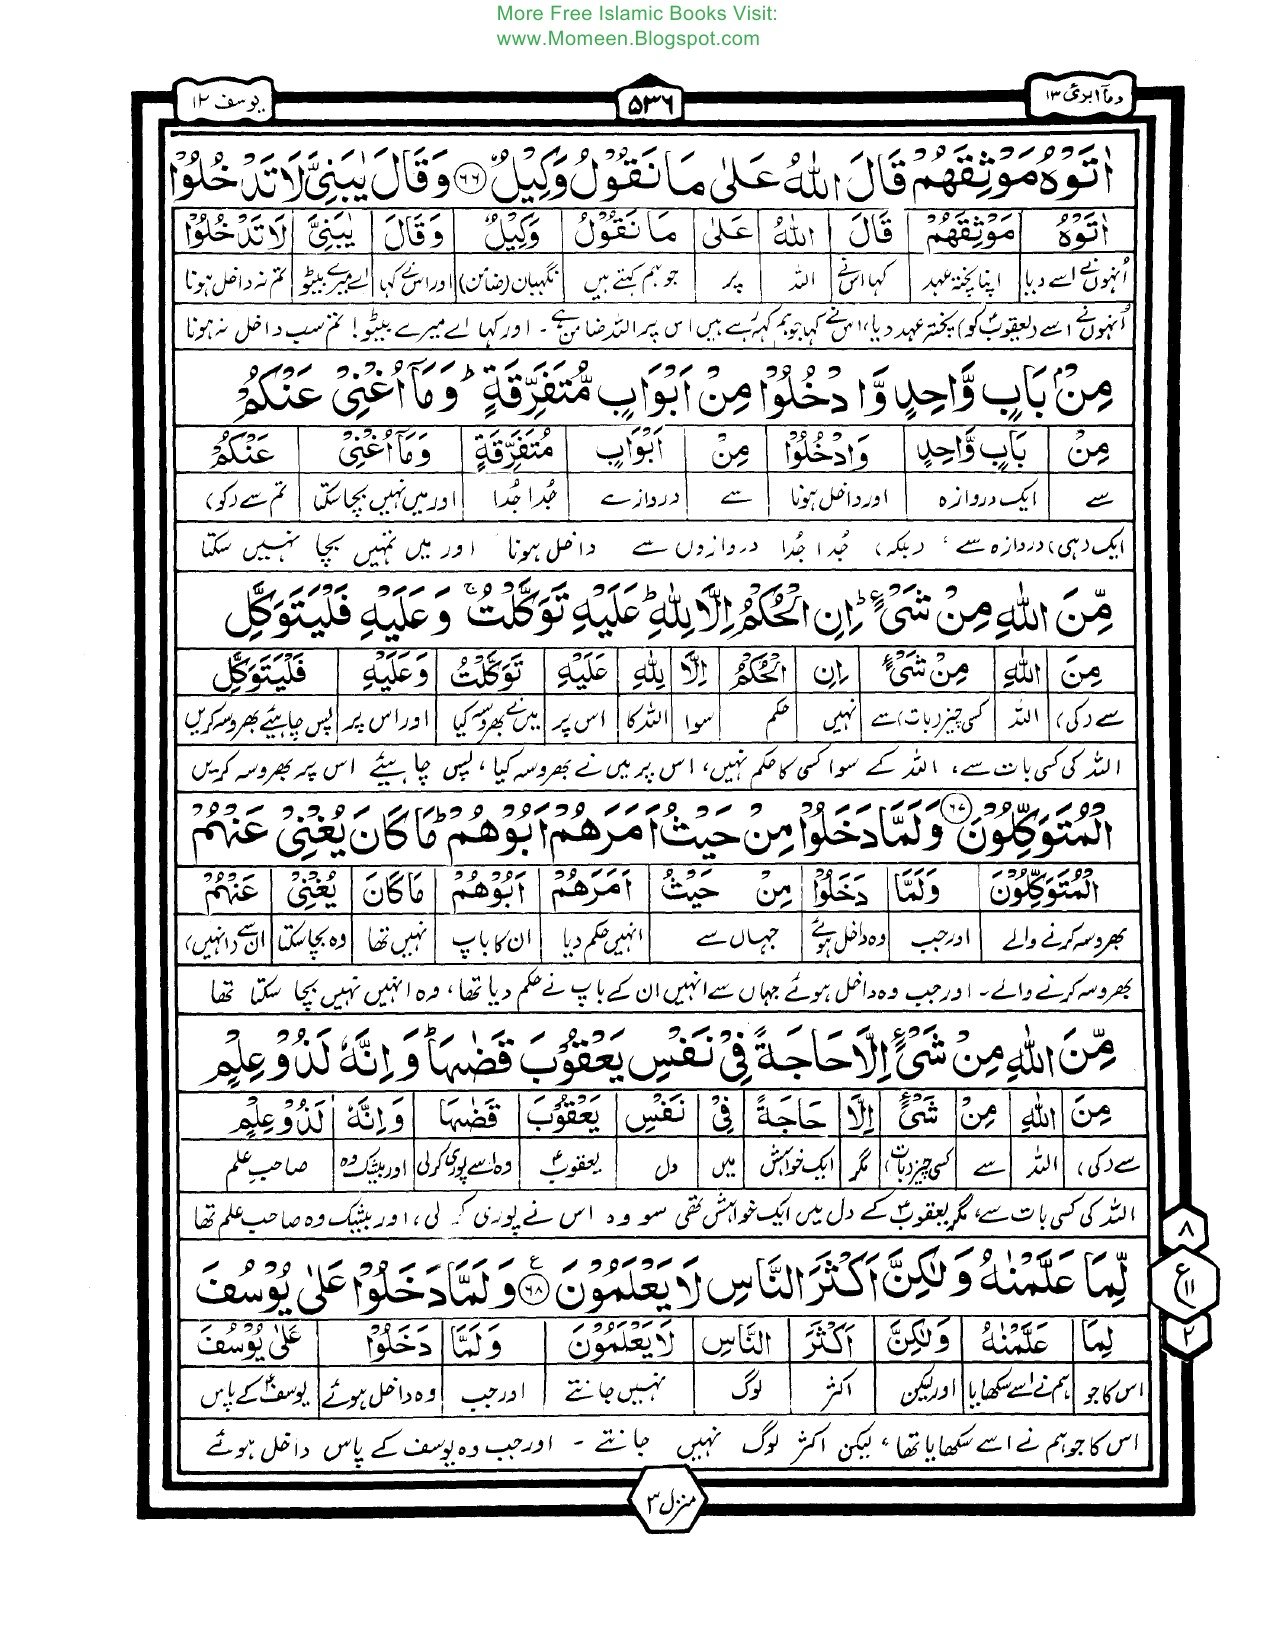 More Free Islamic Books Visit:
www.Momeen.Blogspot.com
یوسف ۱۲ ۵۳۶ ومآ ابرئ ۱۳
اٰتَوْهُ مَوْثِقَهُمْ قَالَ اللّٰهُ عَلٰى مَا نَقُوْلُ وَكِيْلٌ ﴿۶۶﴾ وَقَالَ يٰبَنِيَّ لَا تَدْخُلُوْا
اٰتَوْهُ مَوْثِقَهُمْ قَالَ اللّٰهُ عَلٰى مَا نَقُوْلُ وَكِيْلٌ وَقَالَ يٰبَنِيَّ لَا تَدْخُلُوْا
اُنہوں نے اسے دیا اپنا پختہ عہد کہا اس نے اللہ پر جو ہم کہتے ہیں نگہبان (ضامن) اور اس نے کہا اے میرے بیٹو تم نہ داخل ہونا
اُنہوں نے اسے (یعقوبؑ کو) پختہ عہد دیا، اس نے کہا جو ہم کہہ رہے ہیں اس پر اللہ ضامن ہے۔ اور کہا اے میرے بیٹو! تم سب داخل نہ ہونا
مِنْۢ بَابٍ وَّاحِدٍ وَّادْخُلُوْا مِنْ اَبْوَابٍ مُّتَفَرِّقَةٍ ؕ وَمَآ اُغْنِيْ عَنْكُمْ
مِنْ بَابٍ وَّاحِدٍ وَادْخُلُوْا مِنْ اَبْوَابٍ مُتَفَرِّقَةٍ وَمَآ اُغْنِيْ عَنْكُمْ
سے ایک دروازہ اور داخل ہونا سے دروازے جُدا جُدا اور میں نہیں بچا سکتا تم سے (کو)
ایک (ہی) دروازہ سے، (بلکہ) جُدا جُدا دروازوں سے داخل ہونا اور میں تمہیں بچا نہیں سکتا
مِّنَ اللّٰهِ مِنْ شَيْءٍ ؕ اِنِ الْحُكْمُ اِلَّا لِلّٰهِ ؕ عَلَيْهِ تَوَكَّلْتُ ۚ وَعَلَيْهِ فَلْيَتَوَكَّلِ
مِنَ اللّٰهِ مِنْ شَيْءٍ اِنِ الْحُكْمُ اِلَّا لِلّٰهِ عَلَيْهِ تَوَكَّلْتُ وَعَلَيْهِ فَلْيَتَوَكَّلِ
سے (کی) اللہ کسی چیز (بات) سے نہیں حکم سوا اللہ کا اس پر میں نے بھروسہ کیا اور اس پر پس چاہیئے بھروسہ کریں
اللہ کی کسی بات سے، اللہ کے سوا کسی کا حکم نہیں، اس پر میں نے بھروسہ کیا، پس چاہیئے اس پر بھروسہ کریں
الْمُتَوَكِّلُوْنَ ﴿۶۷﴾ وَلَمَّا دَخَلُوْا مِنْ حَيْثُ اَمَرَهُمْ اَبُوْهُمْ ؕ مَا كَانَ يُغْنِيْ عَنْهُمْ
الْمُتَوَكِّلُوْنَ وَلَمَّا دَخَلُوْا مِنْ حَيْثُ اَمَرَهُمْ اَبُوْهُمْ مَا كَانَ يُغْنِيْ عَنْهُمْ
بھروسہ کرنے والے اور جب وہ داخل ہوئے جہاں سے انہیں حکم دیا ان کا باپ نہیں تھا وہ بچا سکتا ان سے (انہیں)
بھروسہ کرنے والے۔ اور جب وہ داخل ہوئے جہاں سے انہیں ان کے باپ نے حکم دیا تھا، وہ انہیں نہیں بچا سکتا تھا
مِّنَ اللّٰهِ مِنْ شَيْءٍ اِلَّا حَاجَةً فِيْ نَفْسِ يَعْقُوْبَ قَضٰىهَا ؕ وَاِنَّهٗ لَذُوْ عِلْمٍ
مِنَ اللّٰهِ مِنْ شَيْءٍ اِلَّا حَاجَةً فِيْ نَفْسِ يَعْقُوْبَ قَضٰىهَا وَاِنَّهٗ لَذُوْ عِلْمٍ
سے (کی) اللہ سے کسی چیز (بات) مگر ایک خواہش میں دل یعقوبؑ وہ اسے پوری کر لی اور بیشک وہ صاحبِ علم
اللہ کی کسی بات سے، مگر یعقوبؑ کے دل میں ایک خواہش تھی سو وہ اس نے پوری کر لی، اور بیشک وہ صاحب علم تھا
لِّمَا عَلَّمْنٰهُ وَلٰكِنَّ اَكْثَرَ النَّاسِ لَا يَعْلَمُوْنَ ﴿۶۸﴾ ع وَلَمَّا دَخَلُوْا عَلٰى يُوْسُفَ
لِمَا عَلَّمْنٰهُ وَلٰكِنَّ اَكْثَرَ النَّاسِ لَا يَعْلَمُوْنَ وَلَمَّا دَخَلُوْا عَلٰى يُوْسُفَ
اس کا جو ہم نے اسے سکھایا اور لیکن اکثر لوگ نہیں جانتے اور جب وہ داخل ہوئے یوسفؑ کے پاس
اس کا جو ہم نے اسے سکھایا تھا، لیکن اکثر لوگ نہیں جانتے ۔ اور جب وہ یوسف کے پاس داخل ہوئے
۸
ع ۱۱
۲
منزل ۳